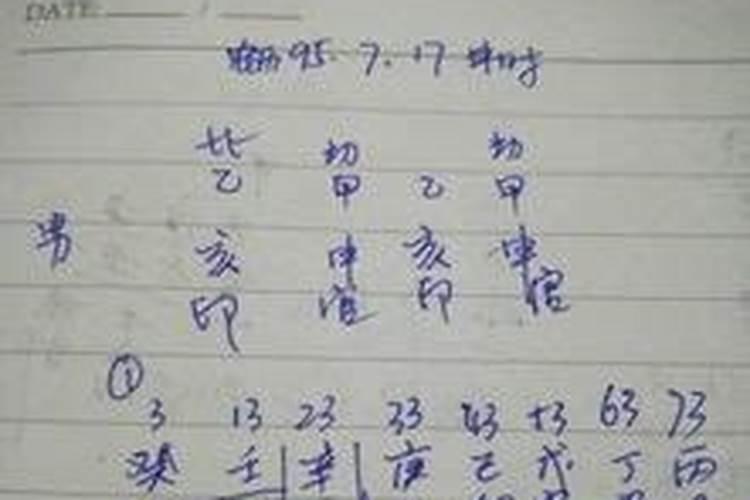 DATE: /
阴历95.7.17申时
比 劫 劫
乙 甲 乙 甲
男 亥 申 亥 申
印 官 印 官
①
3 13 23 33 43 53 63 73
癸 壬 辛 庚 己 戊 丁 丙